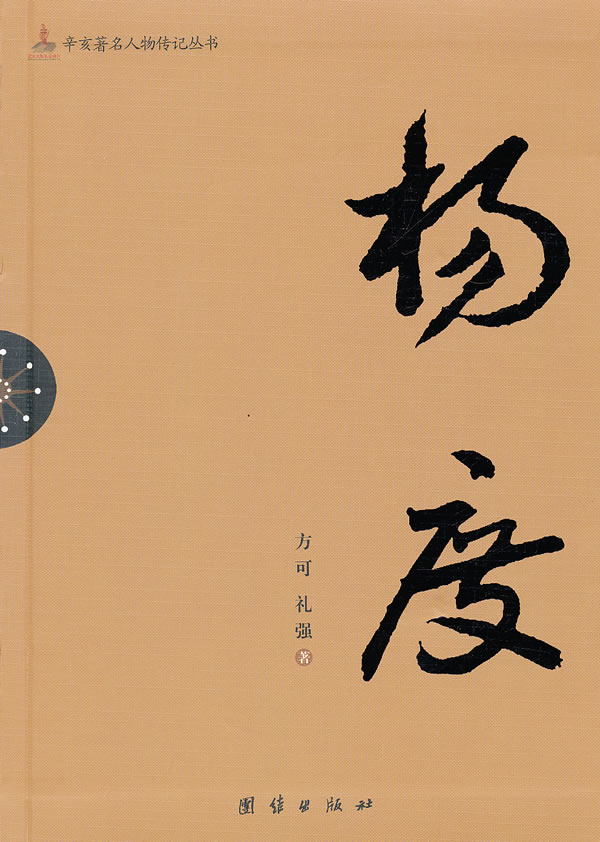 辛亥著名人物传记丛书
杨度
方可 礼强 著
團结出版社